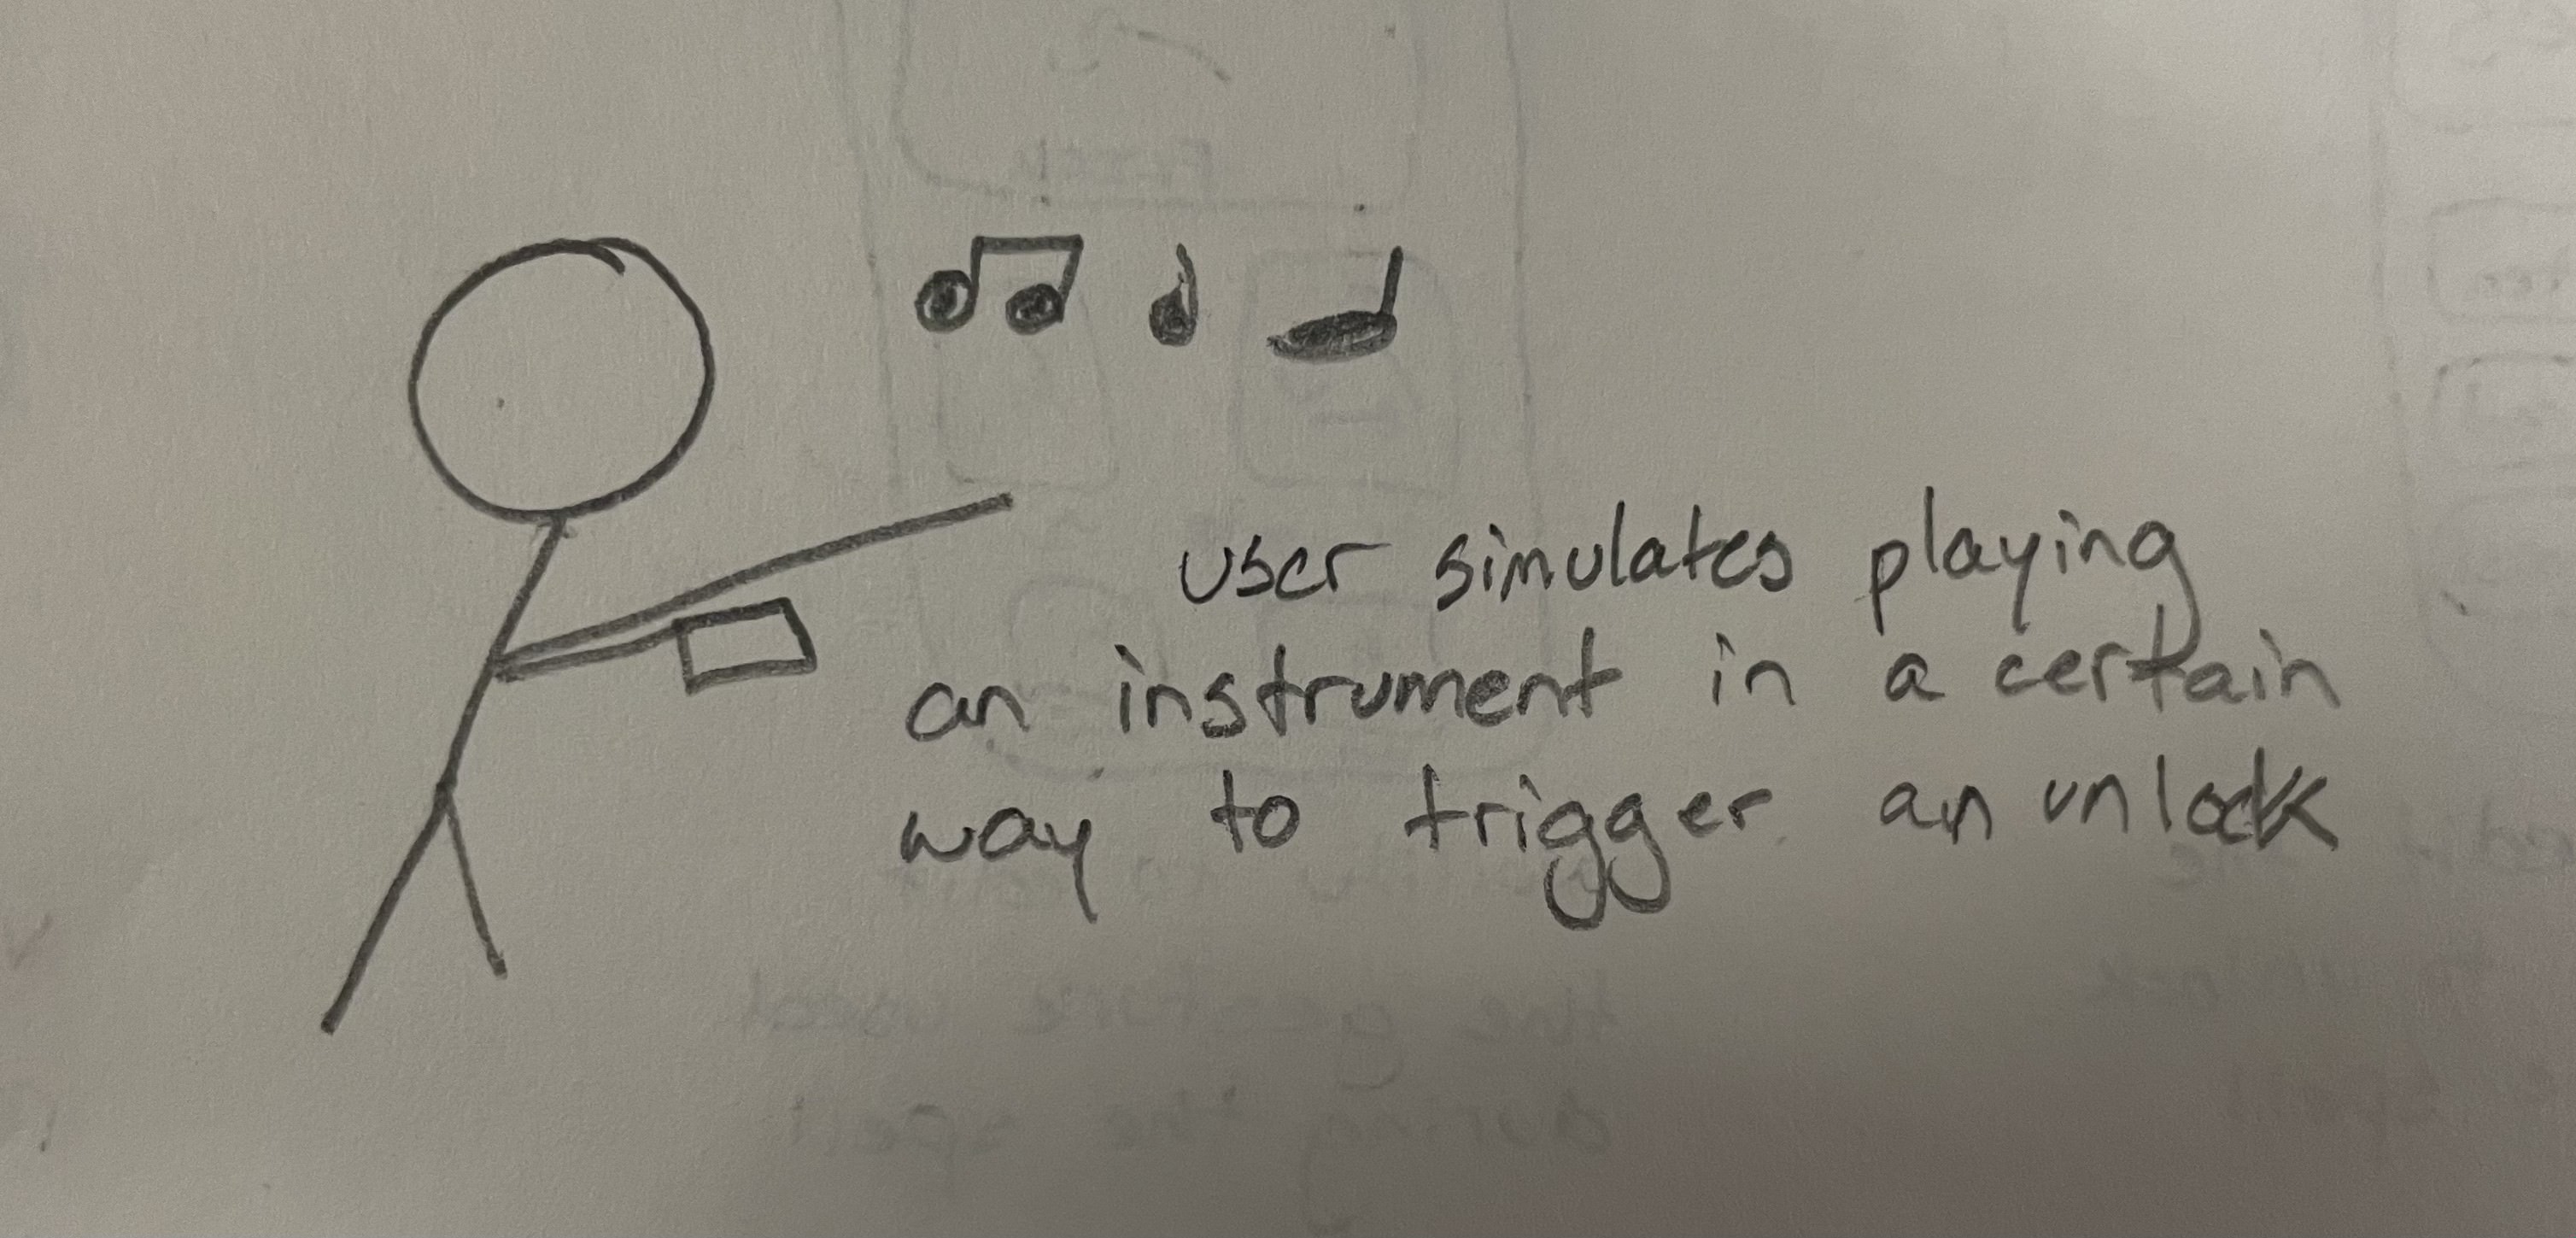 user simulates playing
an instrument in a certain
way to trigger an unlock